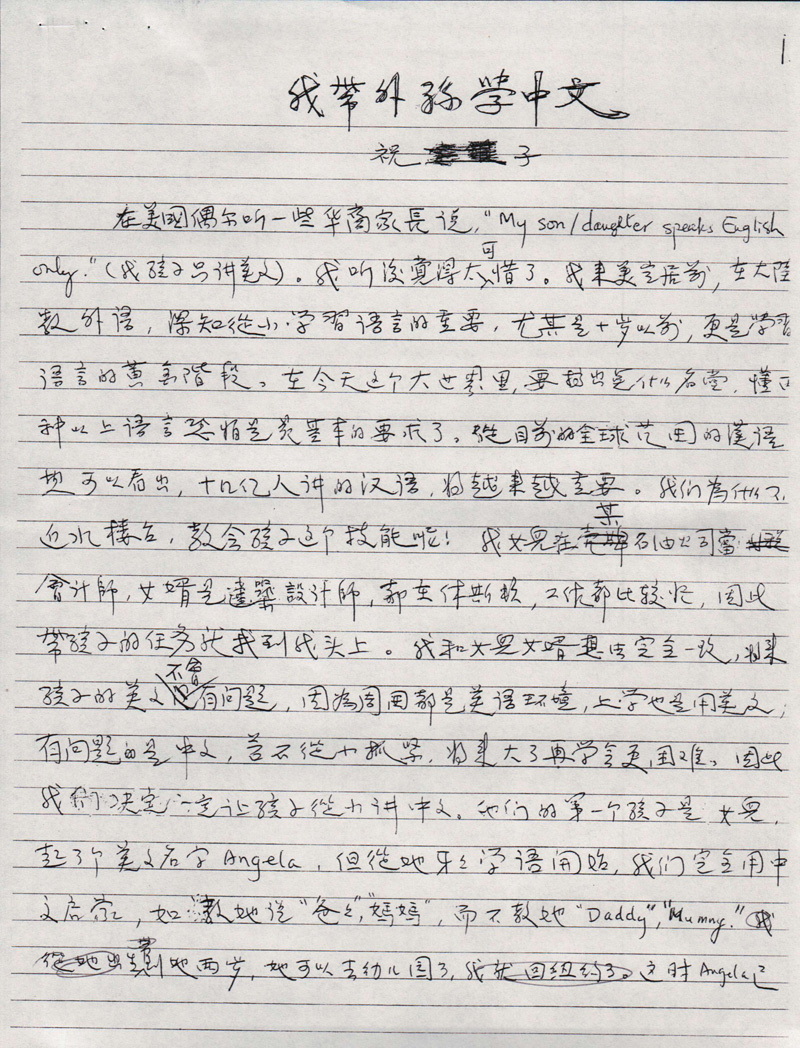 1
我带外孫學中文
祝 子
在美國偶尔听一些华裔家長说,"My son/daughter speaks English
only."(我孩子只讲英文)。我听後覺得太可惜了。我来美定居前,在大陸
教外语,深知從小学習語言的重要,尤其是十岁以前,更是学習
語言的黄金階段。在今天这个大世界里,要找出
种以上语言恐怕是最基本的要求了。從目前的全球范围的漢語
热可以看出,十几亿人讲的汉语,将越来越重要。我们為什么不
近水楼台,教会孩子这个技能呢!我女兒在某石油公司當
會计師,女婿是建築設計師,都在休斯頓,工作都比较忙,因此
带孩子的任务就找到我头上。我和女兒女婿想法完全一致,将来
孩子的英文不會有问题,因為周围都是英语环境,上学也是用英文;
有问题的是中文,若不從小抓紧,将来大了再学会更困难。因此
我们决定一定让孩子從小讲中文。他们的第一个孩子是女兒,
起了个英文名字Angela,但從她牙牙学语開始,我们完全用中
文启蒙,如教她说"爸爸","媽媽",而不教她"Daddy","Mummy."
带到她两岁,她可以去幼儿园了,我就回纽约了。这时Angela已